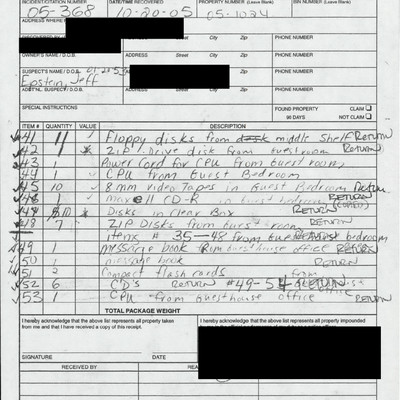 INCIDENT/CITATION NUMBER DATE/TIME RECOVERED PROPERTY NUMBER (Leave Blank) BIN NUMBER (Leave Blank)
05-368 10-20-05 05-1024
ADDRESS WHERE
DISCOVERED BY ADDRESS Street City Zip PHONE NUMBER
OWNER'S NAME / D.O.B. ADDRESS Street City Zip PHONE NUMBER
SUSPECT'S NAME / D.O.B. ADDRESS Street City Zip PHONE NUMBER
Epstein, Jeff
ADDT'NL SUSPECT / D.O.B. ADDRESS Street City Zip PHONE NUMBER
SPECIAL INSTRUCTIONS FOUND PROPERTY CLAIM
90 DAYS NOT CLAIM
ITEM # QUANTITY DESCRIPTION
41 11 Floppy disks from desk middle shelf RETURN
42 1 ZIP Drive disk from guest room RETURN
43 1 Power Cord for CPU from guest room
44 1 CPU from Guest Bedroom
45 10 8mm video Tapes in Guest Bedroom Return
1 maxell CD-R in guest bedroom RETURN
Disks in clear Box RETURN
7 ZIP Disks from guest room RETURN
items # 35-48 from guest bedroom
49 1 message book from guesthouse office RETURN
50 1 message book RETURN
51 2 Compact flash cards from
52 6 CD's RETURN #49-54
53 1 CPU from Guesthouse office RETURN
TOTAL PACKAGE WEIGHT
I hereby acknowledge that the above list represents all property taken from me and that I have received a copy of this receipt.
I hereby acknowledge that the above list represents all property impounded
SIGNATURE DATE
RECEIVED BY HEAD